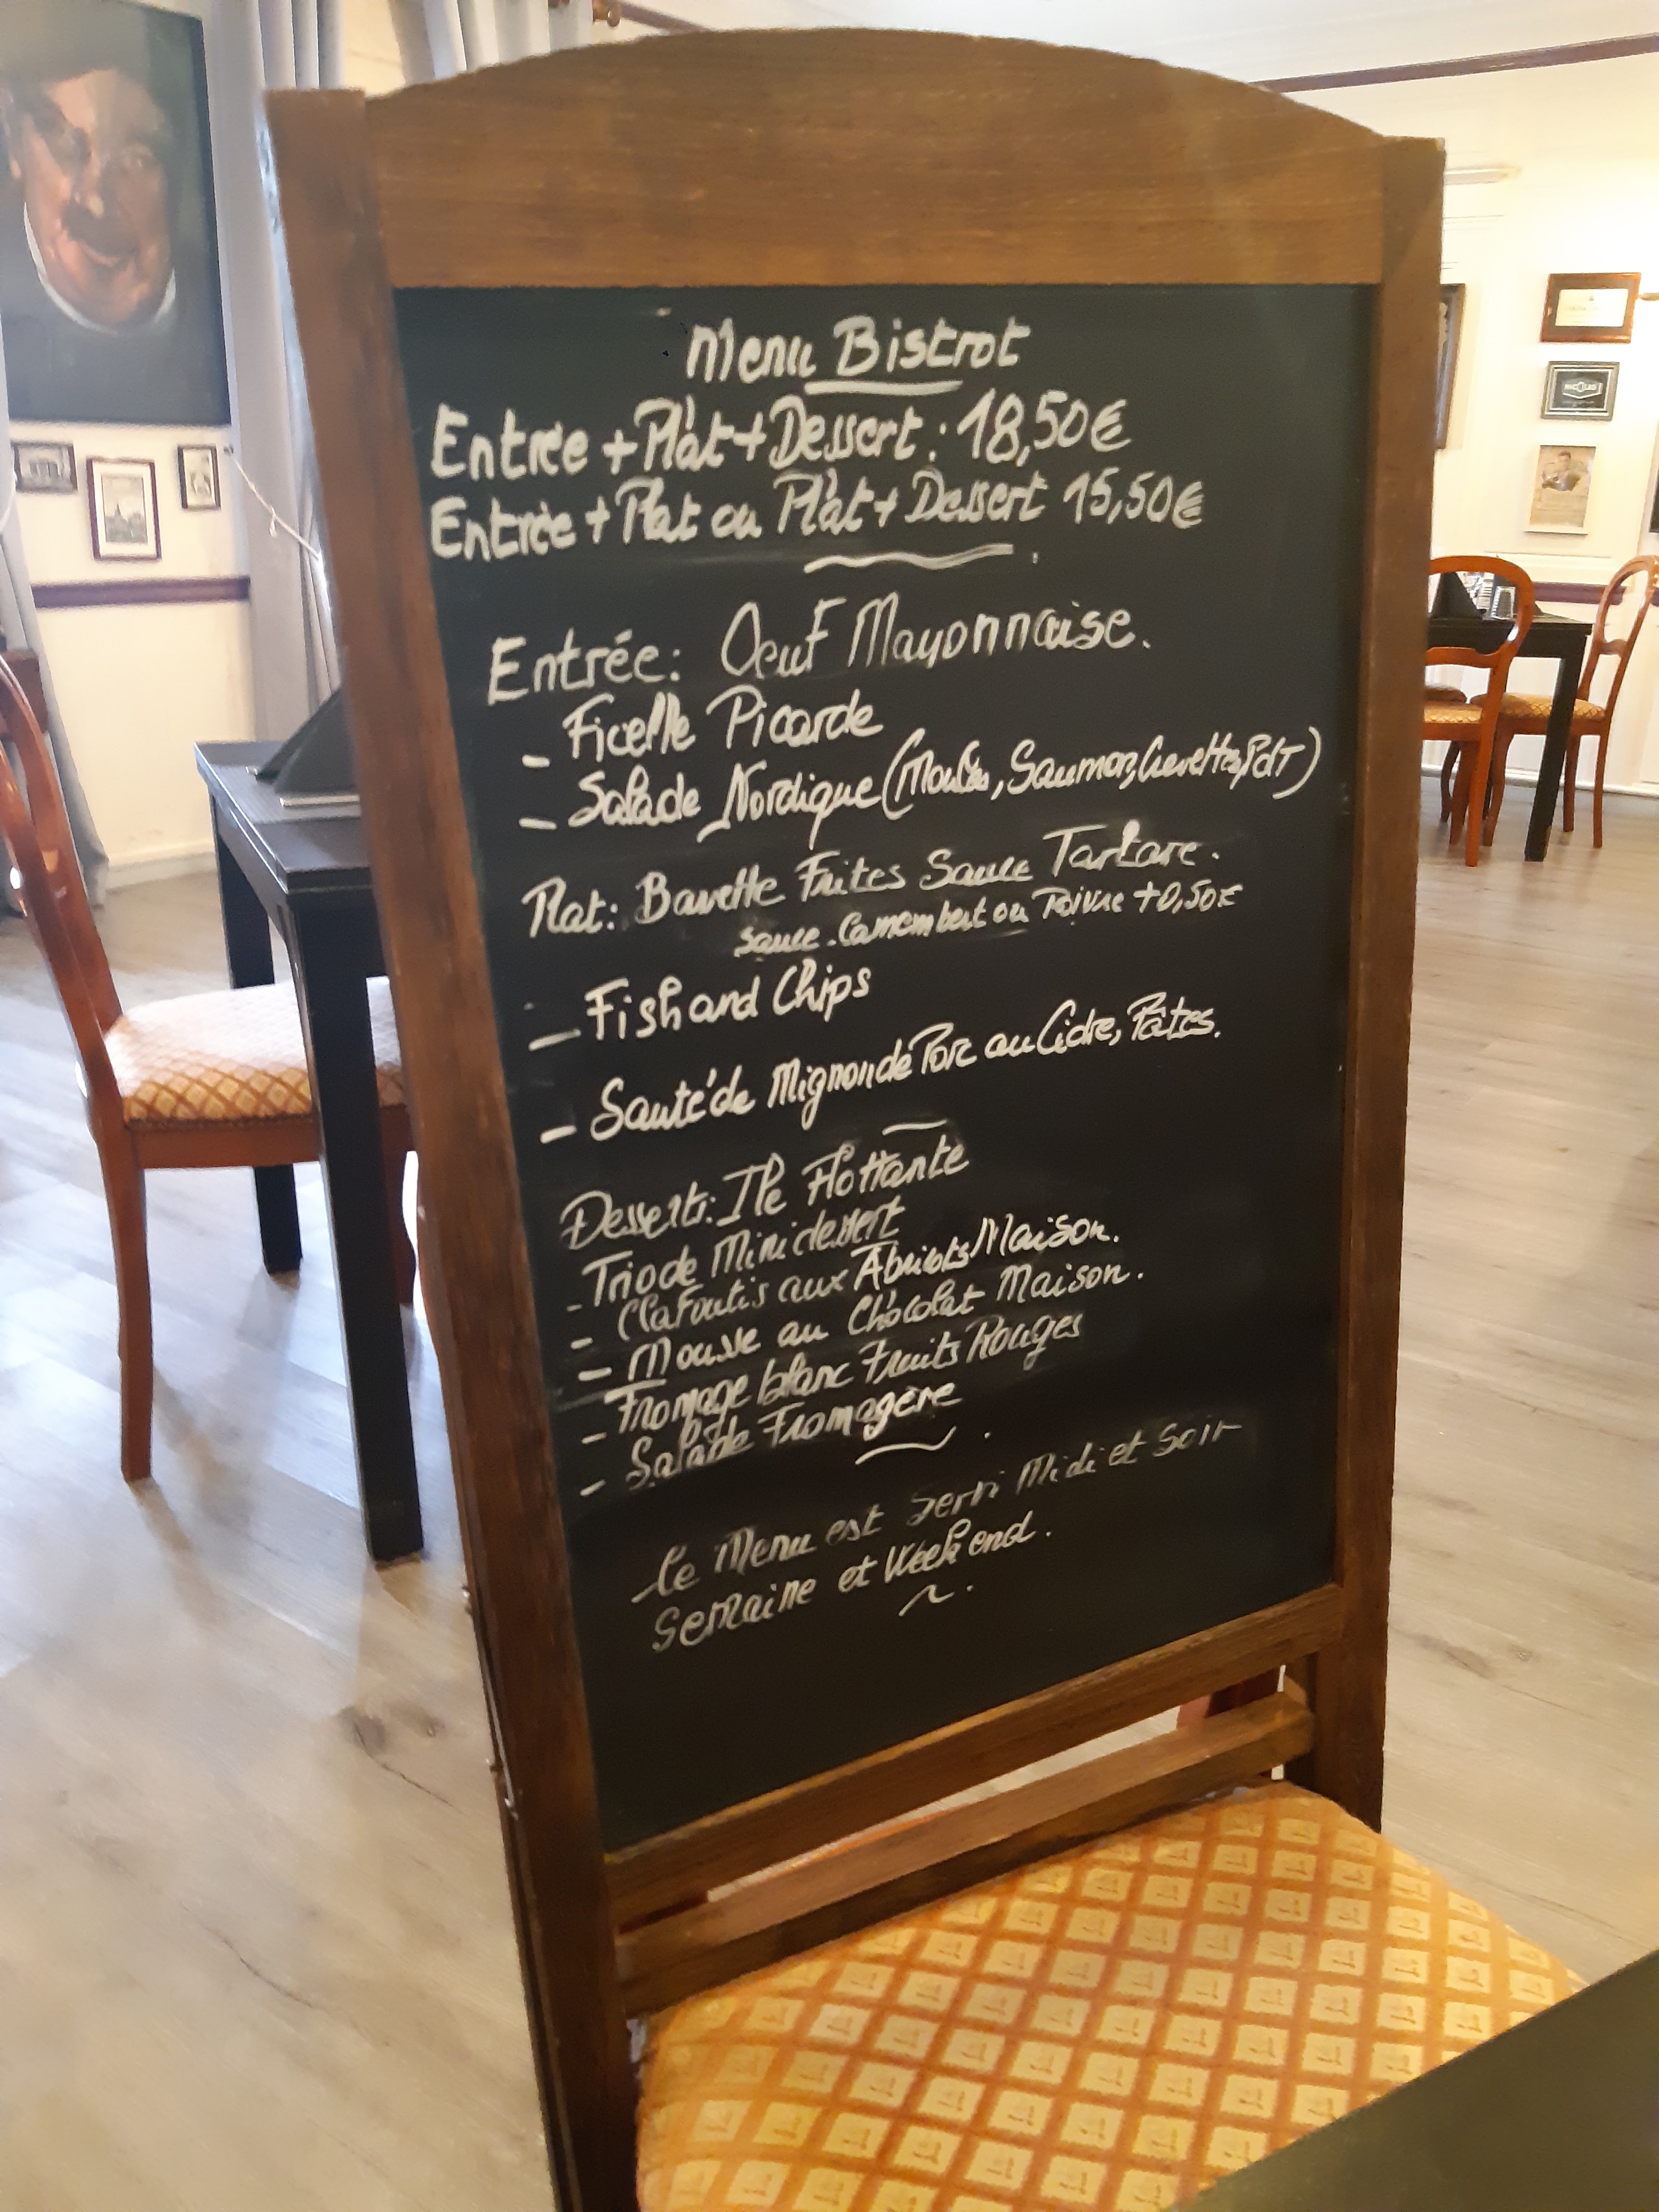 Menu Bistrot
Entrée + Plat + Dessert : 18,50€
Entrée + Plat ou Plat + Dessert 15,50€
Entrée : Oeuf Mayonnaise.
- Ficelle Picarde
- Salade Nordique (Moules, Saumon, Crevettes, PdT)
Plat : Bavette Frites Sauce Tartare.
sauce. Camembert ou Poivre +0,50€
- Fish and Chips
- Sauté de Mignon de Porc au Cidre, Pâtes.
Dessert : Ile Flottante
- Trio de Mini dessert
- Clafoutis aux Abricots Maison.
- Mousse au Chocolat Maison.
- Fromage blanc Fruits Rouges
- Salade Fromagère
Le Menu est Servi Midi et Soir
Semaine et Week end.
NICOLAS